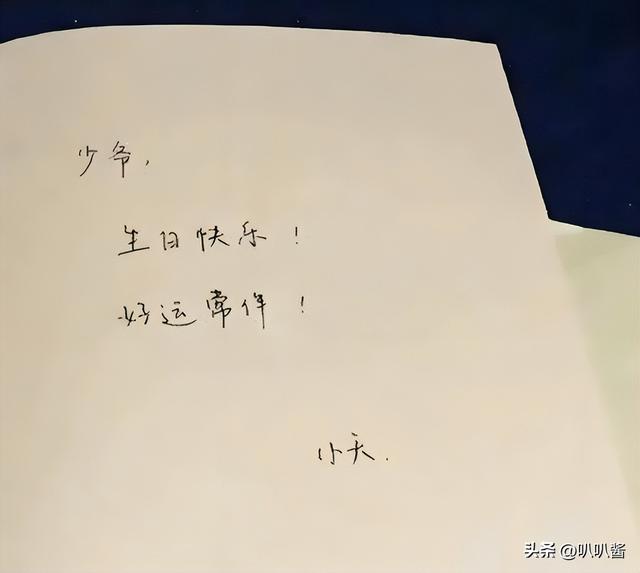 少爷，
生日快乐！
好运常伴！
小天.
头条 @叭叭酱